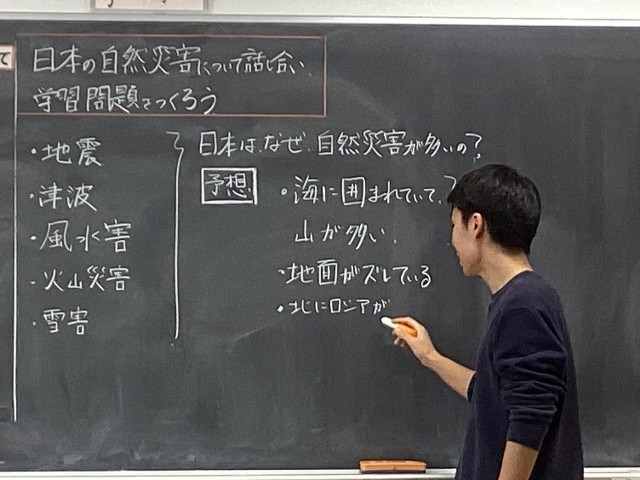 て
日本の自然災害について話し合い、
学習問題をつくろう
・地震
・津波
・風水害
・火山災害
・雪害
日本は、なぜ、自然災害が多いの?
予想
・海に囲まれていて、
山が多い、
・地面がズレている
・北にロシアが